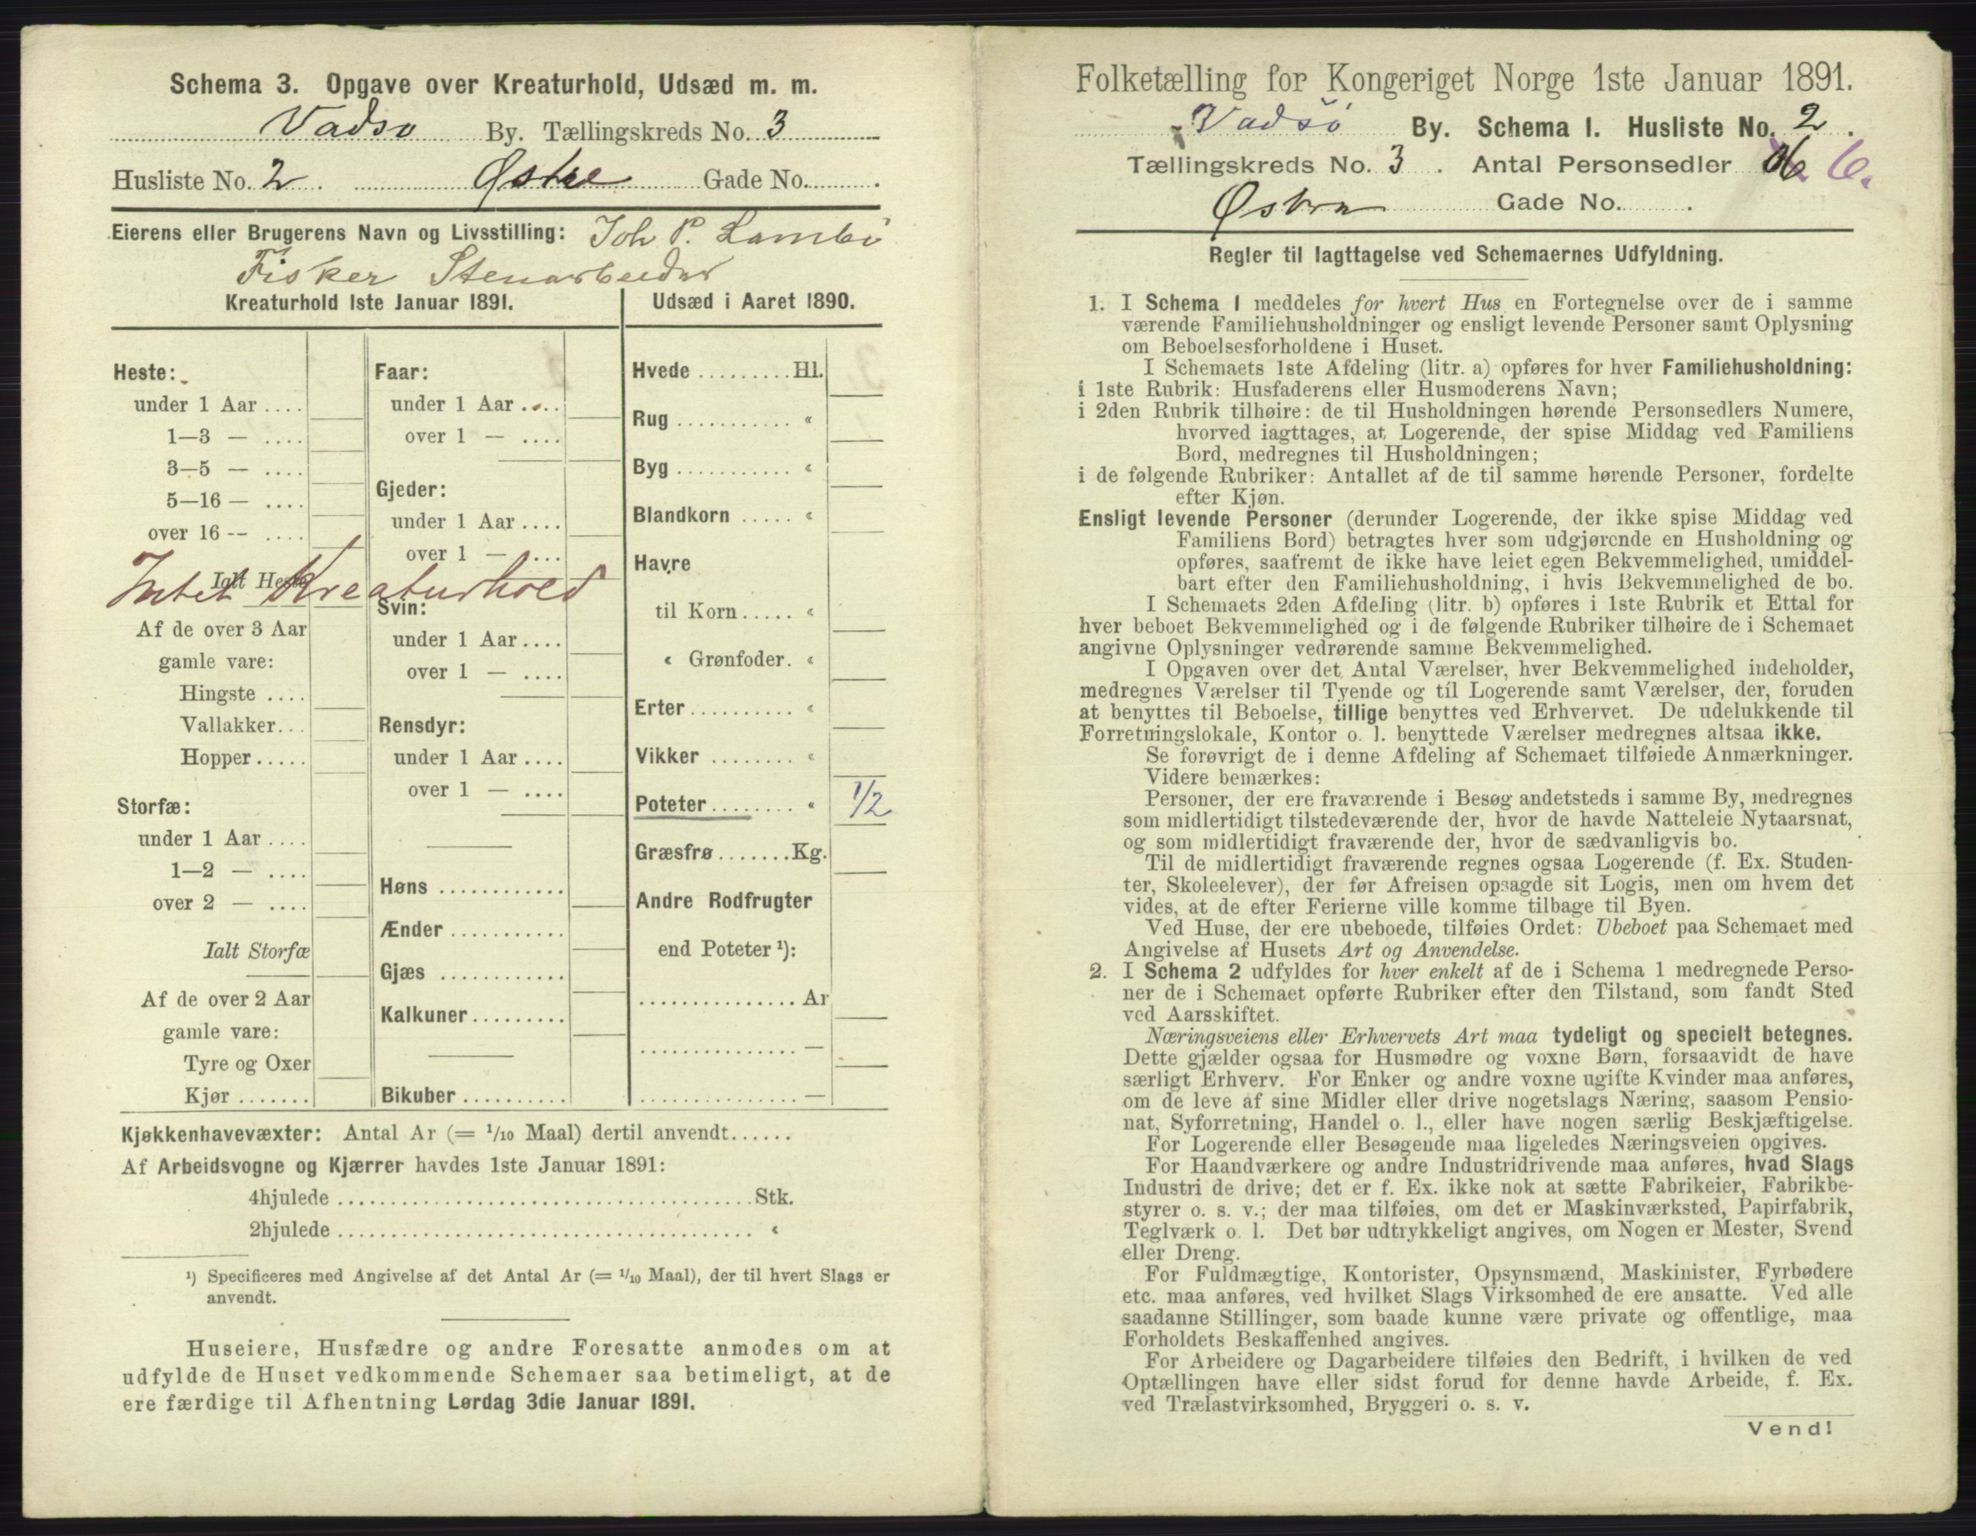 Schema 3. Opgave over Kreaturhold, Udsæd m. m.
Vadsø By. Tællingskreds No. 3
Husliste No. 2 . Østre Gade No. .
Eierens eller Brugerens Navn og Livsstilling: Joh P. Lambø
Fisker Stenarbeider
Kreaturhold 1ste Januar 1891.
Heste:
under 1 Aar ....
1—3 — ....
3—5 — ....
5—16 — ....
over 16 — ....
Ialt Heste
Intet Kreaturhold
Af de over 3 Aar
gamle vare:
Hingste ....
Vallakker...
Hopper.....
Storfæ:
under 1 Aar ....
1—2 — ....
over 2 — ....
Ialt Storfæ
Af de over 2 Aar
gamle vare:
Tyre og Oxer
Kjør .......
Faar:
under 1 Aar ....
over 1 — ....
Gjeder:
under 1 Aar ....
over 1 — ....
Svin:
under 1 Aar ....
over 1 — ....
Rensdyr:
under 1 Aar ....
over 1 — ....
Høns ............
Ænder ...........
Gjæs ............
Kalkuner.........
Bikuber ..........
Udsæd i Aaret 1890.
Hvede .........Hl.
Rug ........... «
Byg ........... «
Blandkorn ..... «
Havre
til Korn ..... «
« Grønfoder. «
Erter .......... «
Vikker ........ «
Poteter ........ « 1/2
Græsfrø .......Kg.
Andre Rodfrugter
end Poteter ¹):
............... Ar
............... —
............... —
Kjøkkenhavevæxter: Antal Ar (= 1/10 Maal) dertil anvendt......
Af Arbeidsvogne og Kjærrer havdes 1ste Januar 1891:
4hjulede ........................................ Stk.
2hjulede ........................................ «
¹) Specificeres med Angivelse af det Antal Ar (= 1/10 Maal), der til hvert Slags er
anvendt.
Huseiere, Husfædre og andre Foresatte anmodes om at
udfylde de Huset vedkommende Schemaer saa betimeligt, at de
ere færdige til Afhentning Lørdag 3die Januar 1891.
Folketælling for Kongeriget Norge 1ste Januar 1891.
Vadsø By. Schema 1. Husliste No. 2 .
Tællingskreds No. 3 . Antal Personsedler 6 6.
Østre Gade No. .
Regler til Iagttagelse ved Schemaernes Udfyldning.
1. I Schema 1 meddeles for hvert Hus en Fortegnelse over de i samme
værende Familiehusholdninger og ensligt levende Personer samt Oplysning
om Beboelsesforholdene i Huset.
I Schemaets 1ste Afdeling (litr. a) opføres for hver Familiehusholdning:
i 1ste Rubrik: Husfaderens eller Husmoderens Navn;
i 2den Rubrik tilhøire: de til Husholdningen hørende Personsedlers Numere,
hvorved iagttages, at Logerende, der spise Middag ved Familiens
Bord, medregnes til Husholdningen;
i de følgende Rubriker: Antallet af de til samme hørende Personer, fordelte
efter Kjøn.
Ensligt levende Personer (derunder Logerende, der ikke spise Middag ved
Familiens Bord) betragtes hver som udgjørende en Husholdning og
opføres, saafremt de ikke have leiet egen Bekvemmelighed, umiddel-
bart efter den Familiehusholdning, i hvis Bekvemmelighed de bo.
I Schemaets 2den Afdeling (litr. b) opføres i 1ste Rubrik et Ettal for
hver beboet Bekvemmelighed og i de følgende Rubriker tilhøire de i Schemaet
angivne Oplysninger vedrørende samme Bekvemmelighed.
I Opgaven over det Antal Værelser, hver Bekvemmelighed indeholder,
medregnes Værelser til Tyende og til Logerende samt Værelser, der, foruden
at benyttes til Beboelse, tillige benyttes ved Erhvervet. De udelukkende til
Forretningslokale, Kontor o. l. benyttede Værelser medregnes altsaa ikke.
Se forøvrigt de i denne Afdeling af Schemaet tilføiede Anmærkninger.
Videre bemærkes:
Personer, der ere fraværende i Besøg andetsteds i samme By, medregnes
som midlertidigt tilstedeværende der, hvor de havde Natteleie Nytaarsnat,
og som midlertidigt fraværende der, hvor de sædvanligvis bo.
Til de midlertidigt fraværende regnes ogsaa Logerende (f. Ex. Studen-
ter, Skoleelever), der før Afreisen opsagde sit Logis, men om hvem det
vides, at de efter Ferierne ville komme tilbage til Byen.
Ved Huse, der ere ubeboede, tilføies Ordet: Ubeboet paa Schemaet med
Angivelse af Husets Art og Anvendelse.
2. I Schema 2 udfyldes for hver enkelt af de i Schema 1 medregnede Perso-
ner de i Schemaet opførte Rubriker efter den Tilstand, som fandt Sted
ved Aarsskiftet.
Næringsveiens eller Erhvervets Art maa tydeligt og specielt betegnes.
Dette gjælder ogsaa for Husmødre og voxne Børn, forsaavidt de have
særligt Erhverv. For Enker og andre voxne ugifte Kvinder maa anføres,
om de leve af sine Midler eller drive nogetslags Næring, saasom Pensio-
nat, Syforretning, Handel o. l., eller have nogen særlig Beskjæftigelse.
For Logerende eller Besøgende maa ligeledes Næringsveien opgives.
For Haandværkere og andre Industridrivende maa anføres, hvad Slags
Industri de drive; det er f. Ex. ikke nok at sætte Fabrikeier, Fabrikbe-
styrer o. s. v.; der maa tilføies, om det er Maskinværksted, Papirfabrik,
Teglværk o. l. Det bør udtrykkeligt angives, om Nogen er Mester, Svend
eller Dreng.
For Fuldmægtige, Kontorister, Opsynsmænd, Maskinister, Fyrbødere
etc. maa anføres, ved hvilket Slags Virksomhed de ere ansatte. Ved alle
saadanne Stillinger, som baade kunne være private og offentlige, maa
Forholdets Beskaffenhed angives.
For Arbeidere og Dagarbeidere tilføies den Bedrift, i hvilken de ved
Optællingen have eller sidst forud for denne havde Arbeide, f. Ex.
ved Trælastvirksomhed, Bryggeri o. s. v.
Vend!